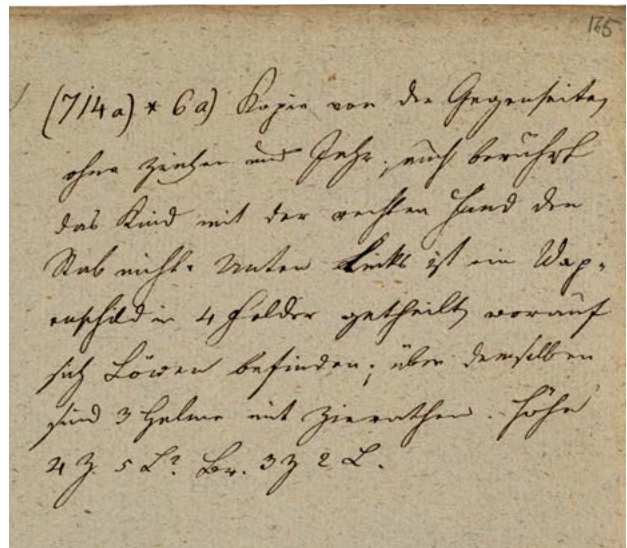 165
(714a) * 6a) Kopie von der Gegenseite,
ohne Zeichen und Jahr, auch berührt
das Kind mit der rechten Hand den
Stab nicht. Unten Links ist ein Wap-
enschild in 4 Felder getheilt, worauf
sich Löwen befinden; über demselben
sind 3 Helme mit Zierathen. Höhe
4 Z. 5 L. Br. 3 Z 2 L.